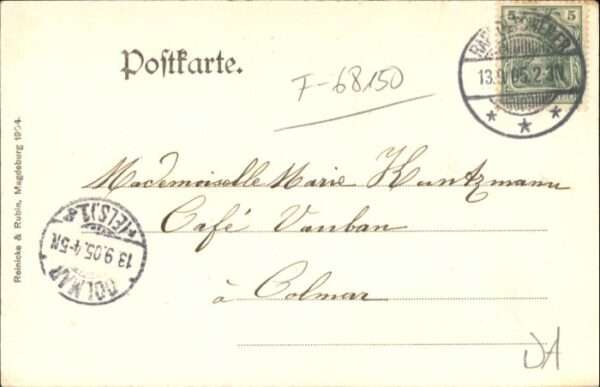 5 5
13.9.05.2-3N
* * *
Postkarte.
F-68150
Mademoiselle Marie Kuntzmann
Café Vauban
à Colmar
COLMAR
13.9.05.4-5N
*(ELS)1*
Reinicke & Rubin, Magdeburg 1904.